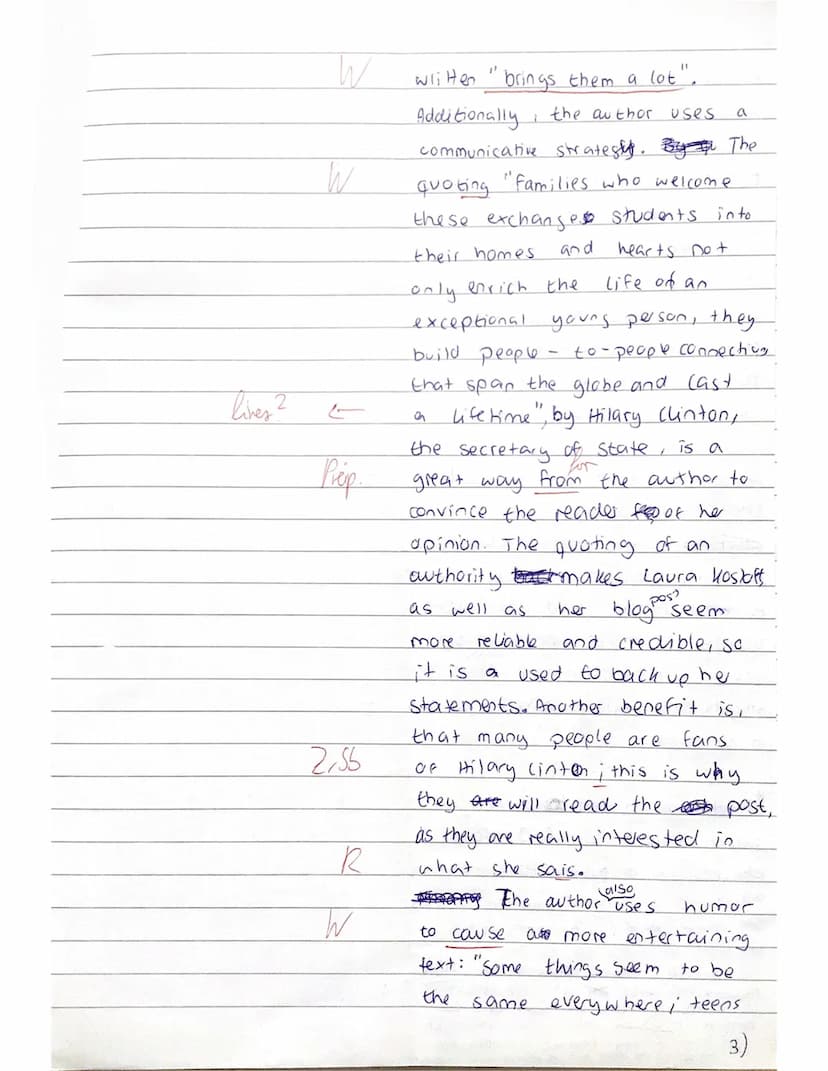 W wliHen "brings them a lot".
Additionally, the author uses a
communicative strategy. The
W quoting "families who welcome
these exchange students into
their homes and hearts not
only enrich the life of an
exceptional young person, they
build people-to-people connections
that span the globe and last
lines? ← a lifetime", by Hilary Clinton,
the secretary of State, is a
for
Präp. great way from the author to
convince the reader of her
opinion. The quoting of an
authority makes Laura Kosloff
post
as well as her blog seem
more reliable and credible, so
it is a used to back up her
statements. Another benefit is,
that many people are fans
Z, Sb of Hilary Clinton; this is why
they are will read the post,
as they are really interested in
R what she sais.
also
The author uses humor
W to cause a more entertaining
text: "Some things seem to be
the same everywhere; teens
3)